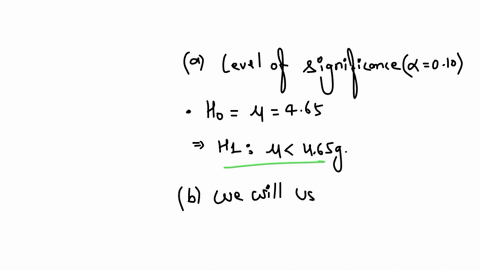 (a) Level of significance (α=0.10)
• H₀ = μ = 4.65
⇒ H1: μ < 4.65g.
(b) we will us